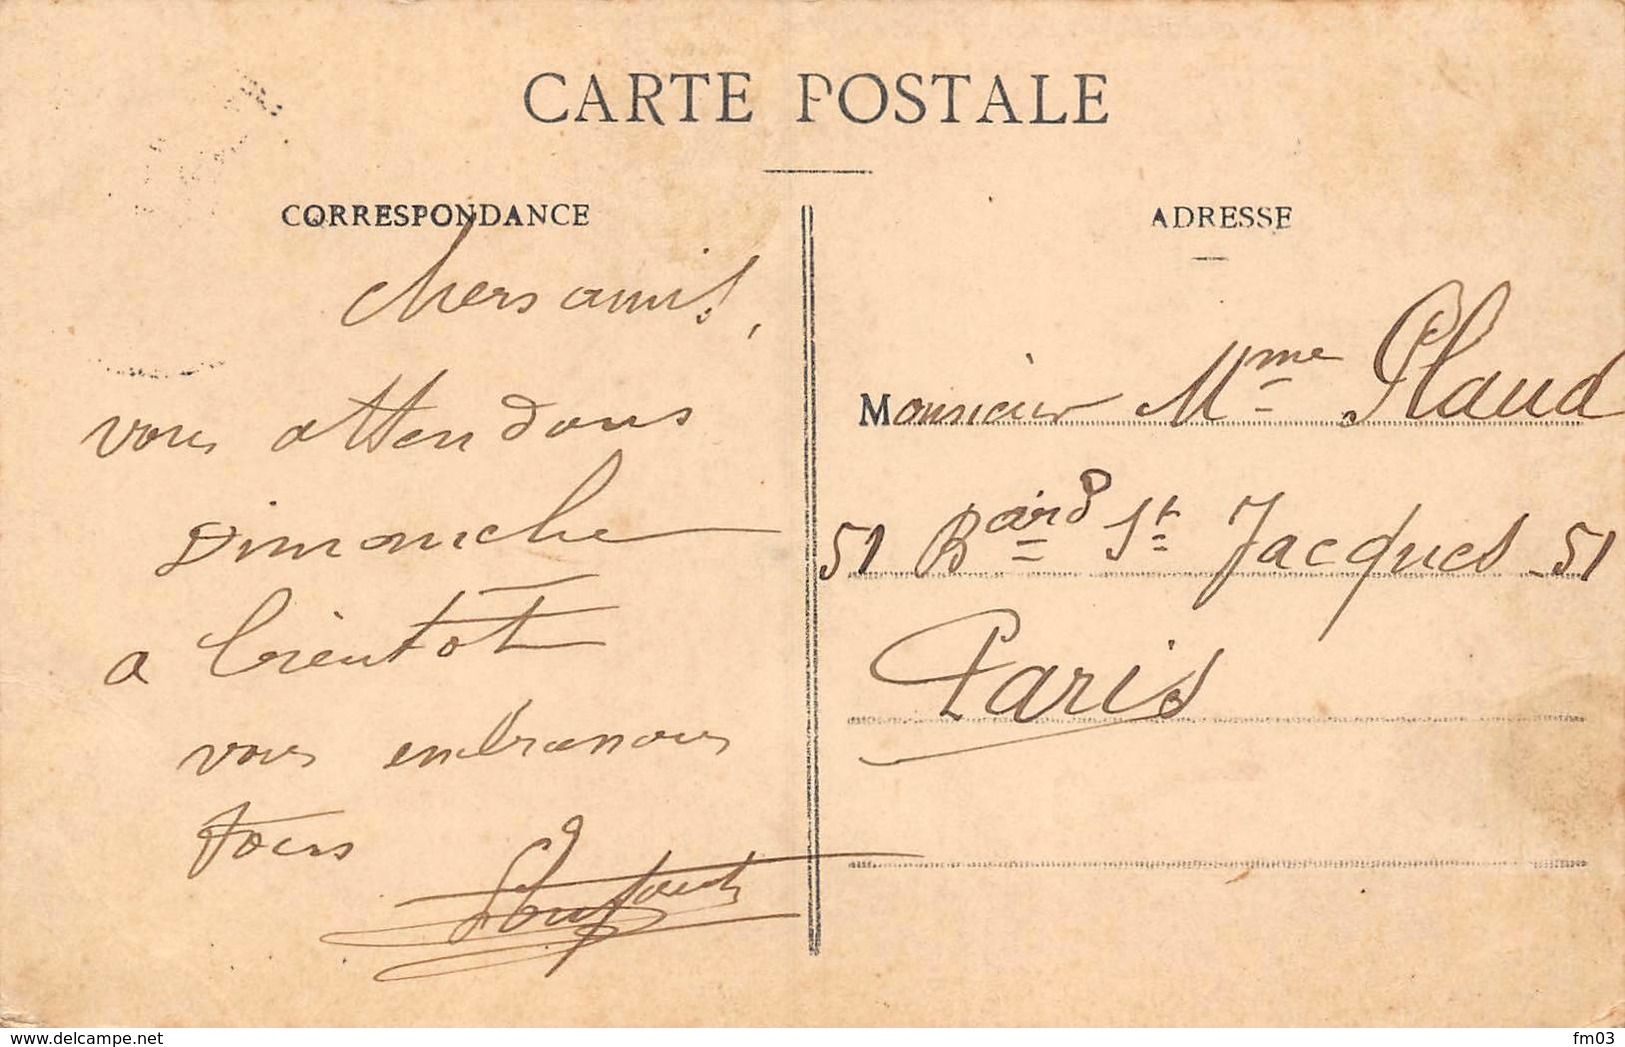 CARTE POSTALE
CORRESPONDANCE
chers amis,
vous attendons
Dimanche
a bientot
vous embrassons
tous
ADRESSE
Monsieur Mme Plaud
51 Bard St Jacques 51
Paris
www.delcampe.net
fm03